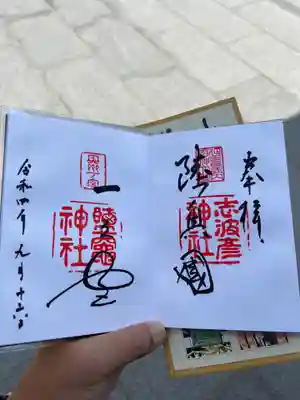 奉拝
陸奥國
志波彦
神社
一之宮
鹽竈
神社
令和四年九月十六日